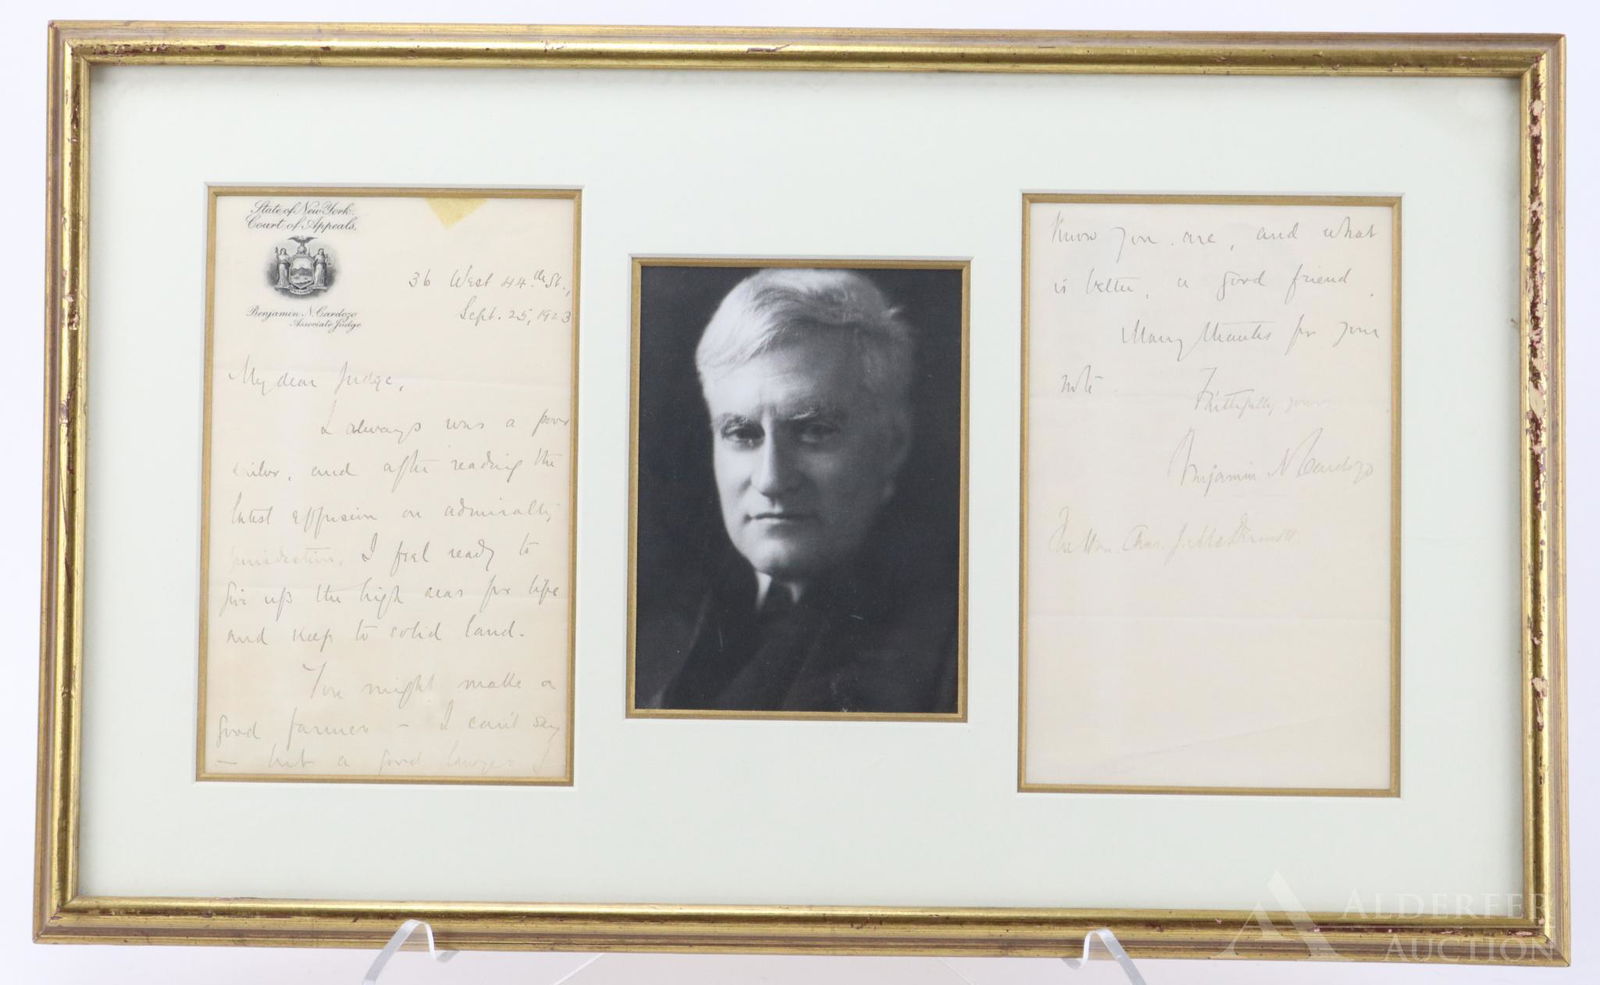 State of New York.
Court of Appeals.
Benjamin N. Cardozo
Associate Judge
36 West 44th St.,
Sept. 25, 1923
My dear Judge,
I always was a poor
sailor, and after reading the
latest effusion on admiralty
jurisdiction, I feel ready to
give up the high seas for life
and keep to solid land.
You might make a
good farmer – I can't say
– but a good lawyer I
know you are, and what
is better, a good friend.
Many thanks for your
note.
Faithfully yours
Benjamin N Cardozo
The Hon. Chas. J. McDermott
ALDERFER
AUCTION